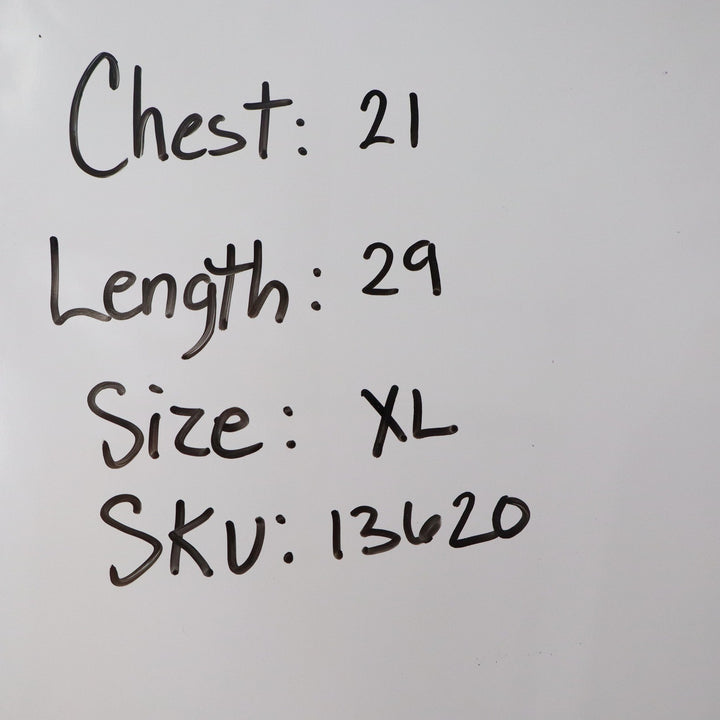 Chest: 21
Length: 29
Size: XL
SKU: 13620